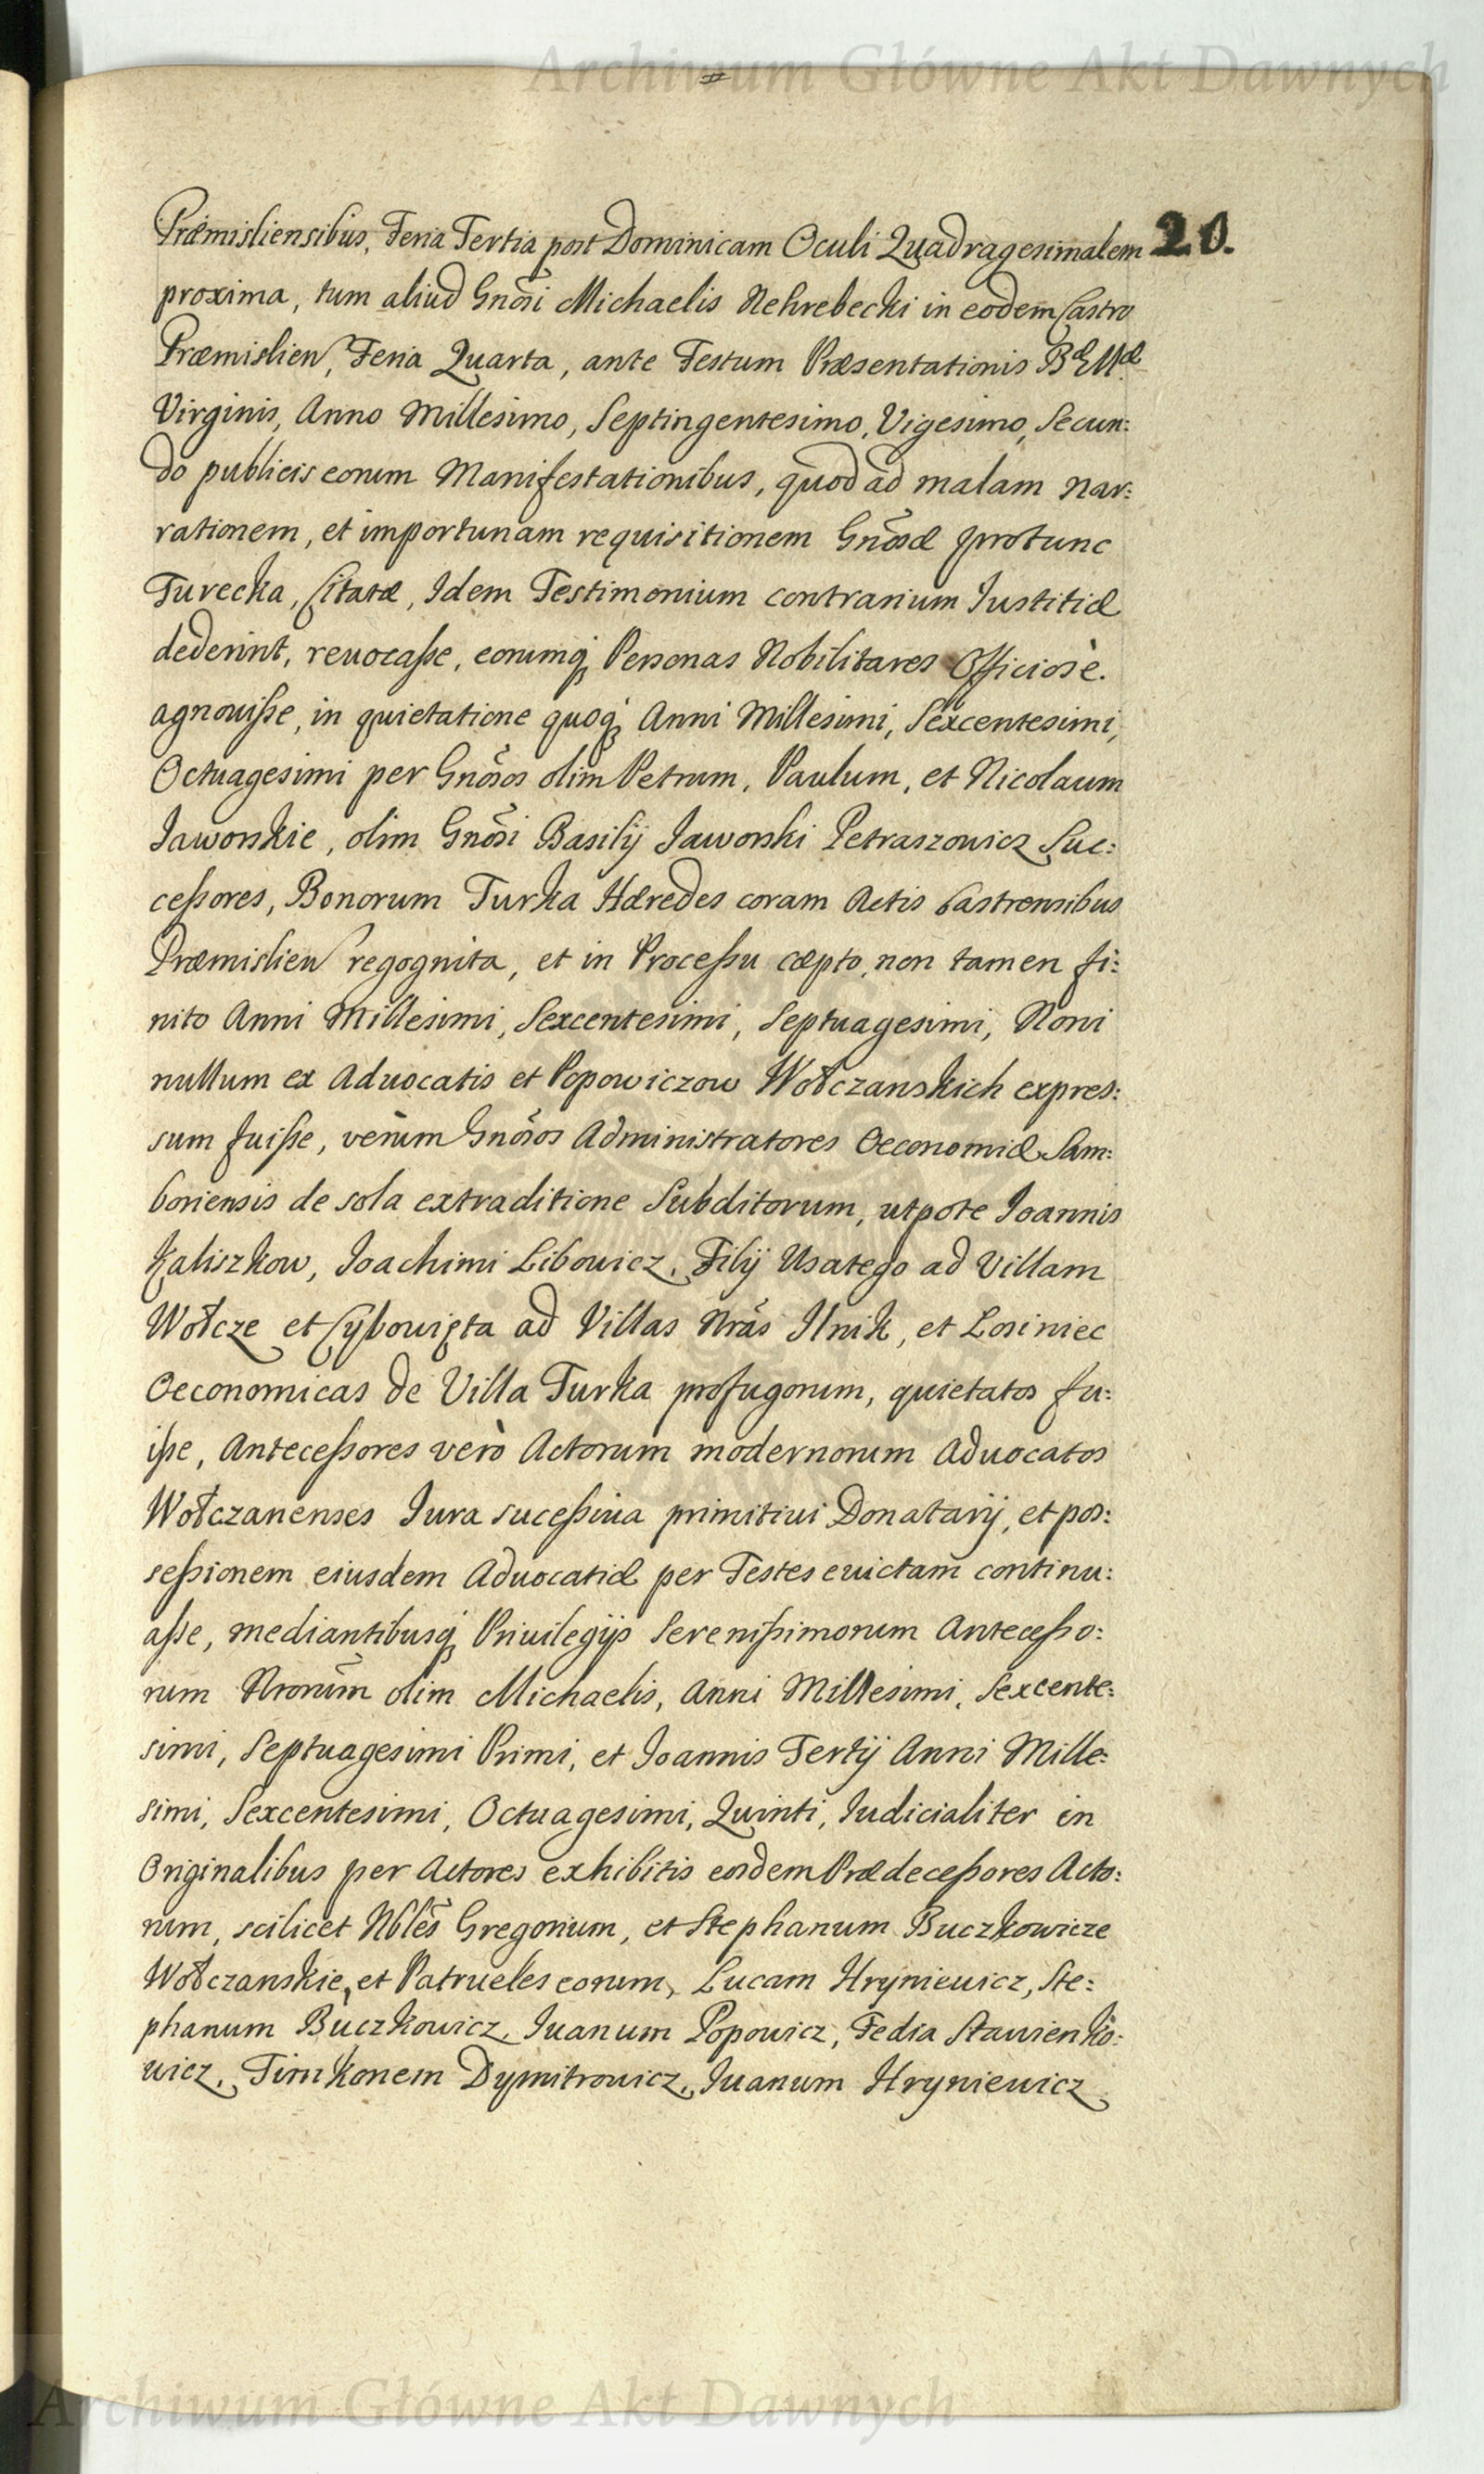 Archiwum Główne Akt Dawnych
20.
Præmisliensibus, Feria Tertia post Dominicam Oculi Quadragesimalem
proxima, tum aliud Gnõsi Michaelis Nehrebecki in eodem Castro
Præmislien, Feria Quarta, ante Festum Præsentationis Bæ Mæ
Virginis, Anno Millesimo, Septingentesimo, Vigesimo, Secun:
do publicis eorum Manifestationibus, quod ad malam nar:
rationem, et importunam requisitionem Gnõsæ protunc
Turecka, Citatæ, Idem Testimonium contrarium Iustitiæ
dederint, reuocaſse, eorumq̃ Personas Nobilitares Officiosè
agnouiſse, in quietatione quoq̃ Anni Millesimi, Sexcentesimi,
Octuagesimi per Gnõsos olim Petrum, Paulum, et Nicolaum
Jaworskie, olim Gnõsi Basilij Jaworski Petraszowicz Suc:
ceſsores, Bonorum Turka Hæredes coram Actis Castrensibus
Præmislien regognita, et in Proceſsu cæpto, non tamen fi:
nito Anni Millesimi, Sexcentesimi, Septuagesimi, Noni
nullum ex Aduocatis et Popowiczow Wołczanskich expres:
sum fuiſse, verùm Gnõsos Administratores Oeconomiæ Sam:
boriensis de sola extraditione Subditorum, utpote Joannis
Kaliszkow, Joachimi Libowicz, Filij Usatego ad Villam
Wołcze et Cybowięta ad Villas Nrãs Ilnik, et Losiniec
Oeconomicas de Villa Turka profugorum, quietatos fu:
iſse, Anteceſsores verò Actorum modernorum Aduocatos
Wołczanenses Jura suceſsiua primitiui Donatarij, et pos:
seſsionem eiusdem Aduocatiæ per Testes euictam continu:
aſse, mediantibusq̃ Priuilegijs Sereniſsimorum Anteceſso:
rum Nrorũm olim Michaelis, Anni Millesimi, Sexcente:
simi, Septuagesimi Primi, et Joannis Tertij Anni Mille:
simi, Sexcentesimi, Octuagesimi, Quinti, Iudicialiter in
Originalibus per Actores exhibitis eosdem Prædeceſsores Acto:
rum, scilicet Nblẽs Gregorium, et Stephanum Buczkowicze
Wołczanskie, et Patrueles eorum, Lucam Hryniewicz, Ste:
phanum Buczkowicz, Iuanum Popowicz, Fedia Stawienko:
wicz, Timkonem Dymitrowicz, Iuanum Hryniewicz
Archiwum Główne Akt Dawnych